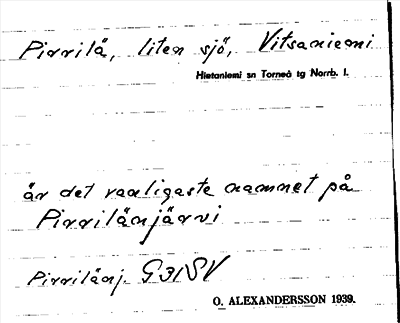 Pirrilä, liten sjö, Vitsaniemi
Hietaniemi sn Torneå tg Norrb. l.
är det vanligaste namnet på
Pirrilänjärvi
Pirrilänj. G31SV
O. ALEXANDERSSON 1939.